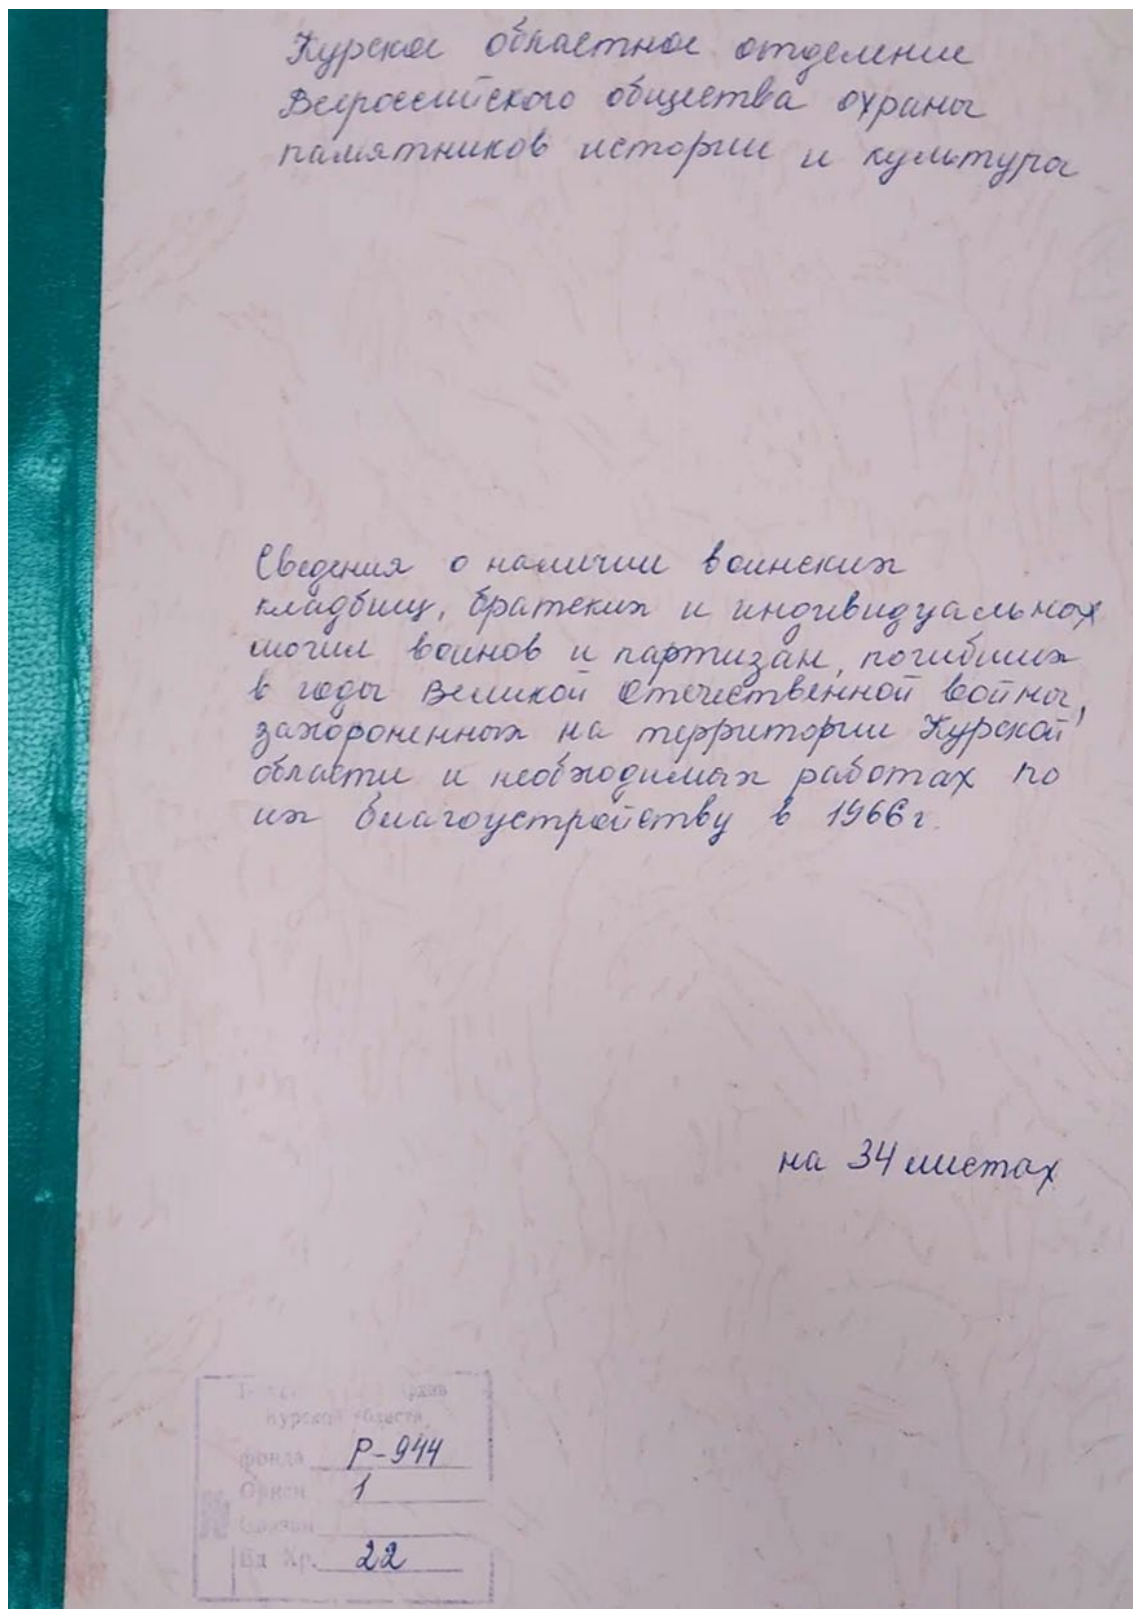 Курское областное отделение
Всероссийского общества охраны
памятников истории и культура
Сведения о наличии воинских
кладбищ, братских и индивидуальных
могил воинов и партизан, погибших
в годы Великой Отечественной войны,
захороненных на территории Курской
области и необходимых работах по
их благоустройству в 1966 г.
на 34 листах
архив
Курской области
фонда Р-944
Описи 1
Вд Хр. 22